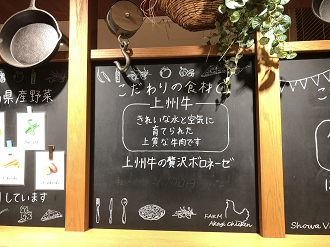 県産野菜
しています
こだわりの食材
上州牛
きれいな水と空気に
育てられた
上質な牛肉です
上州牛の贅沢ボロネーゼ
FARM
Akagi Chicken
Showa V